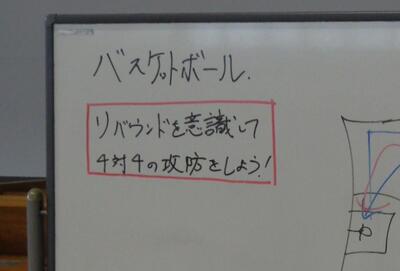 バスケットボール.
リバウンドを意識して
4対4の攻防をしよう!